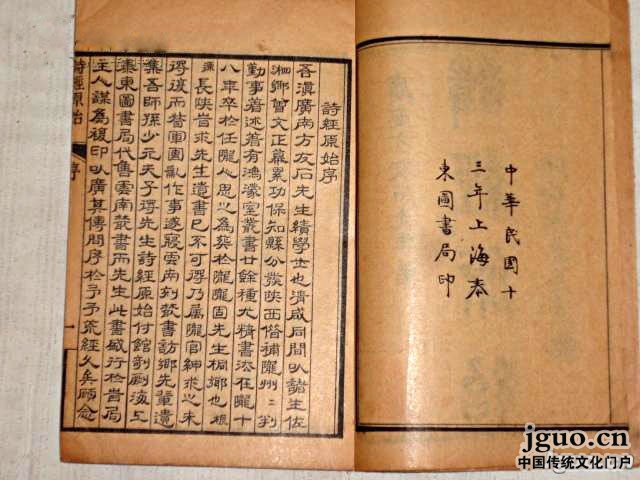 中華民国十
三年上海泰
東圖書局印
詩經原始序
吾滇廣南方友石先生績學士也清咸同間㠯諸生佐
湘鄉曾文正幕累功保知縣分發陝西僃補隴州二判
勤事著述著有鴻濛室叢書廿餘種尤精書法在隴十
八年卒於任隴人思之爲葬於隴隴固先生桐鄉也根
長陝嘗求先生遺書已不可得乃属隴官紳求之未
得復而替軍国亂作事遂寢雲南刻叢書訪鄉先輩遺
集吾師孫少元先生詩經原始付館剞劂海上
泰東圖書局代售雲南叢書而先生此書盛行於昔局
主人謀爲複印㠯廣其傳問序於予予荒經久矣顧念
詩經原始
序
一
jguo.cn
中国传统文化门户